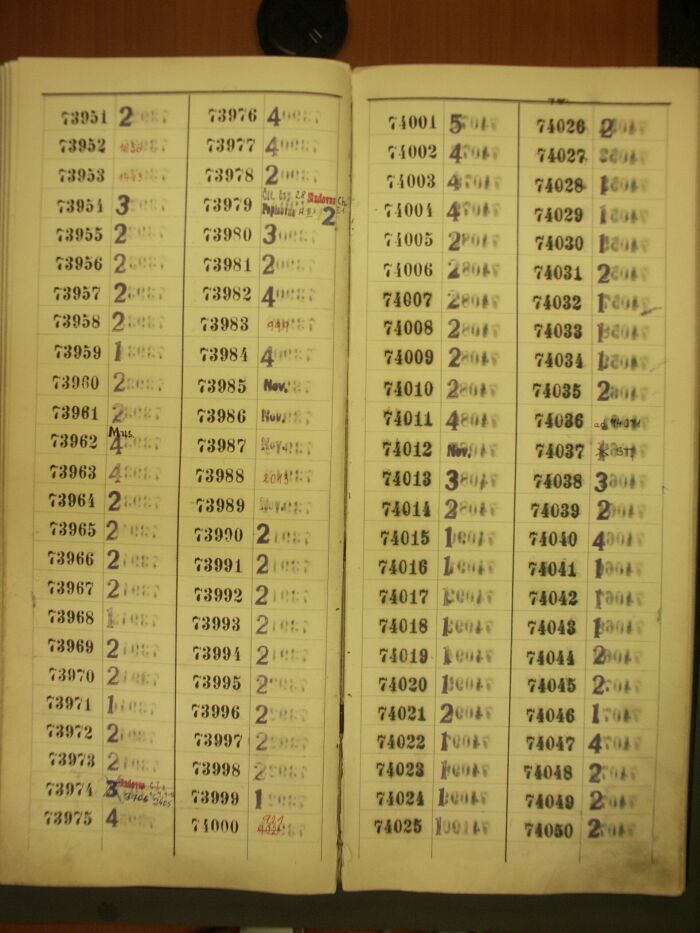 73951 2
73952
73953
73954 3
73955 2
73956 2
73957 2
73958 2
73959 1
73960 2
73961 2
73962 Mus. 4
73963 4
73964 2
73965 2
73966 2
73967 2
73968 1
73969 2
73970 2
73971 1
73972 2
73973 2
73974 3
73975 4
73976 4
73977 4
73978 2
73979 2
73980 3
73981 2
73982 4
73983
73984 4
73985 Nov.
73986 Nov.
73987 Nov.
73988
73989 Nov.
73990 2
73991 2
73992 2
73993 2
73994 2
73995 2
73996 2
73997 2
73998 2
73999 1
74000 921
74001 5
74002 4
74003 4
74004 4
74005 2
74006 2
74007 2
74008 2
74009 2
74010 2
74011 4
74012 Nov.
74013 3
74014 2
74015 1
74016 1
74017 1
74018 1
74019 1
74020 1
74021 2
74022 1
74023 1
74024 1
74025 1
74026 2
74027
74028 1
74029 1
74030 1
74031 2
74032 1
74033 1
74034 1
74035 2
74036
74037
74038 3
74039 2
74040 4
74041 1
74042 1
74043 1
74044 2
74045 2
74046 1
74047 4
74048 2
74049 2
74050 2